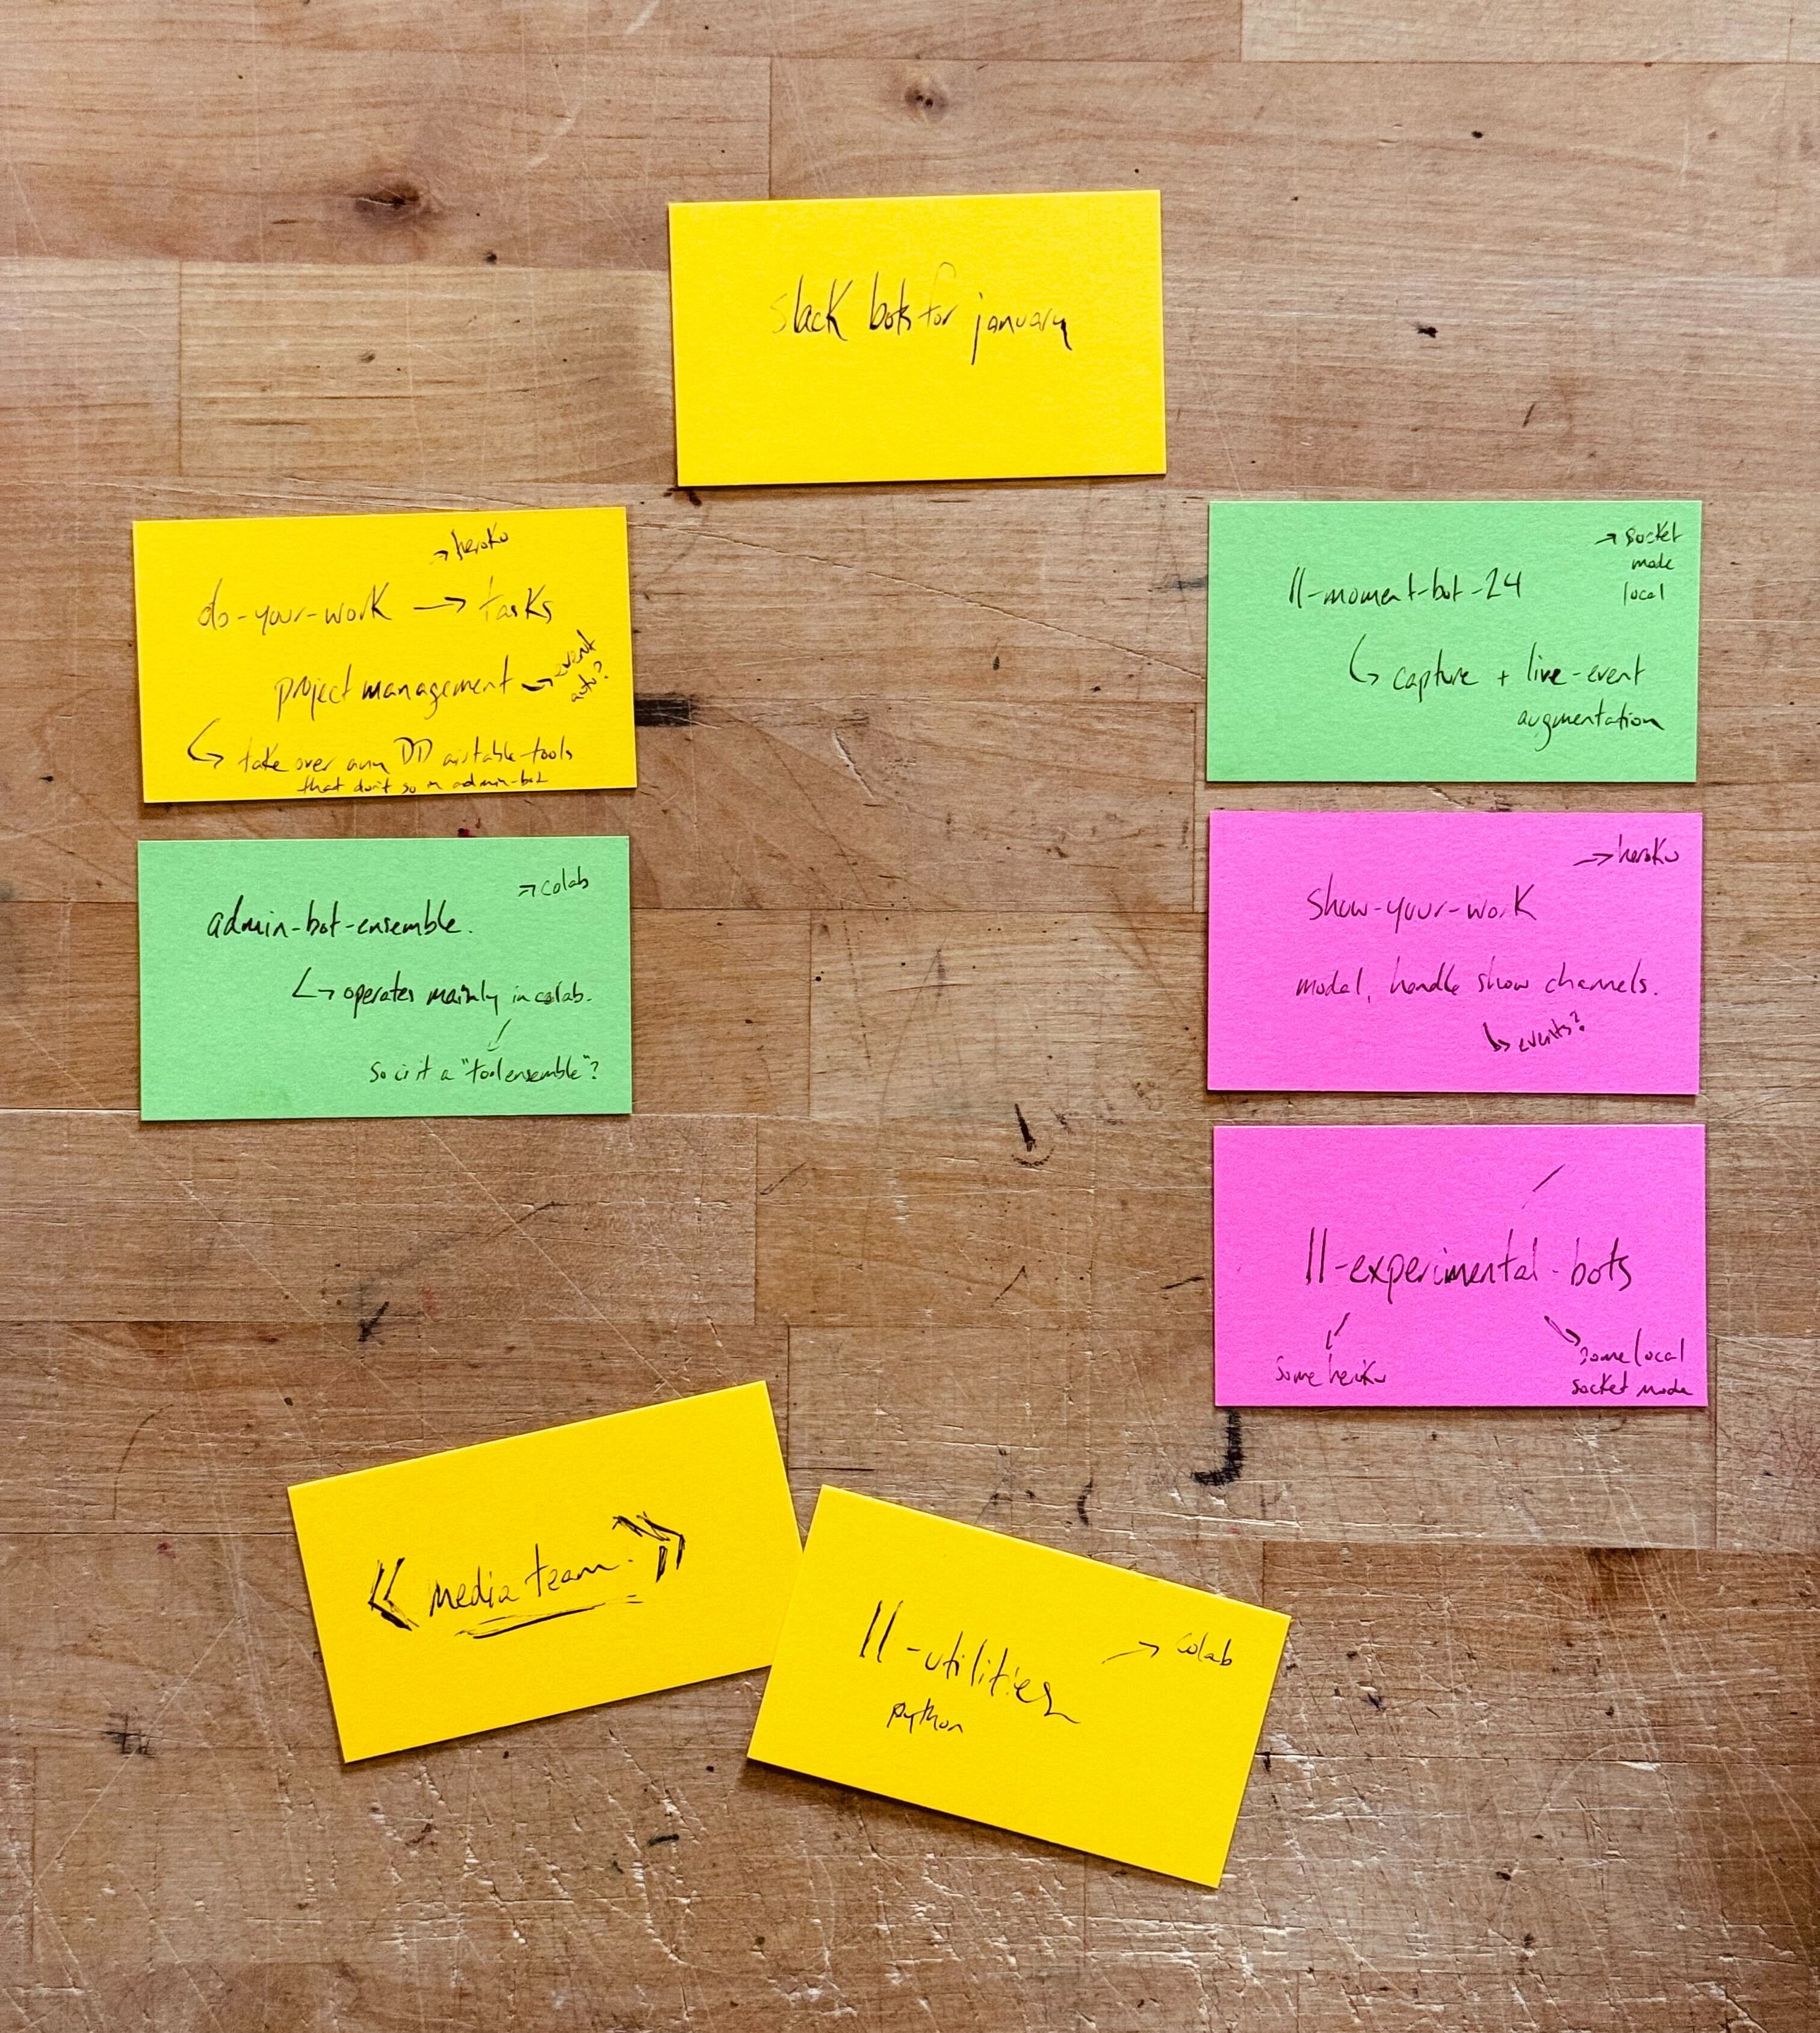 slack bots for january
→ heroku
do-your-work → tasks
project management → event
auto?
↳ take over any DD airtable-tools
that don't go in admin-bot
→ colab
admin-bot-ensemble.
↳ operates mainly in colab.
so is it a "tool ensemble"?
→ socket
mode
local
ll-moment-bot-24
↳ capture + live-event
augmentation
→ heroku
show-your-work
modal, handle show channels.
↳ events?
ll-experimental-bots
some heroku
some local
socket mode
<< media team. >>
ll-utilities → colab
python